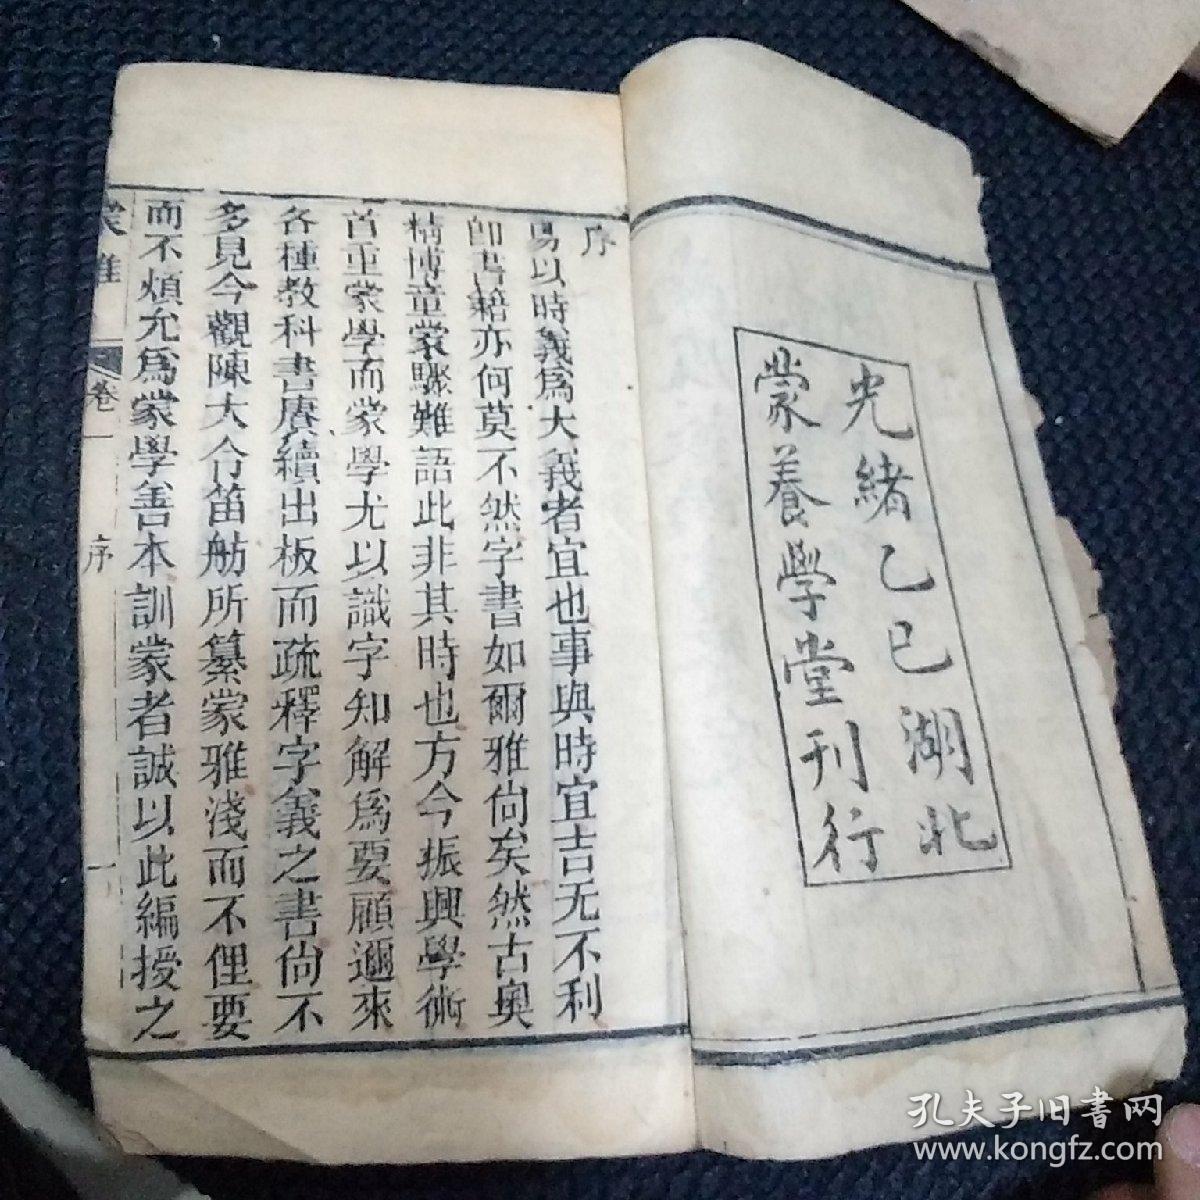 光緒乙巳湖北
蒙養學堂刊行
序
易以時義爲大義者宜也事與時宜吉无不利
卽書籍亦何莫不然字書如爾雅尙矣然古奧
精博童蒙驟難語此非其時也方今振興學術
首重蒙學而蒙學尤以識字知解爲要顧邇來
各種教科書賡續出板而疏釋字義之書尙不
多見今觀陳大令笛舫所纂蒙雅淺而不俚要
而不煩允爲蒙學善本訓蒙者誠以此編授之
蒙雅 卷一 序 一
孔夫子旧书网
www.kongfz.com